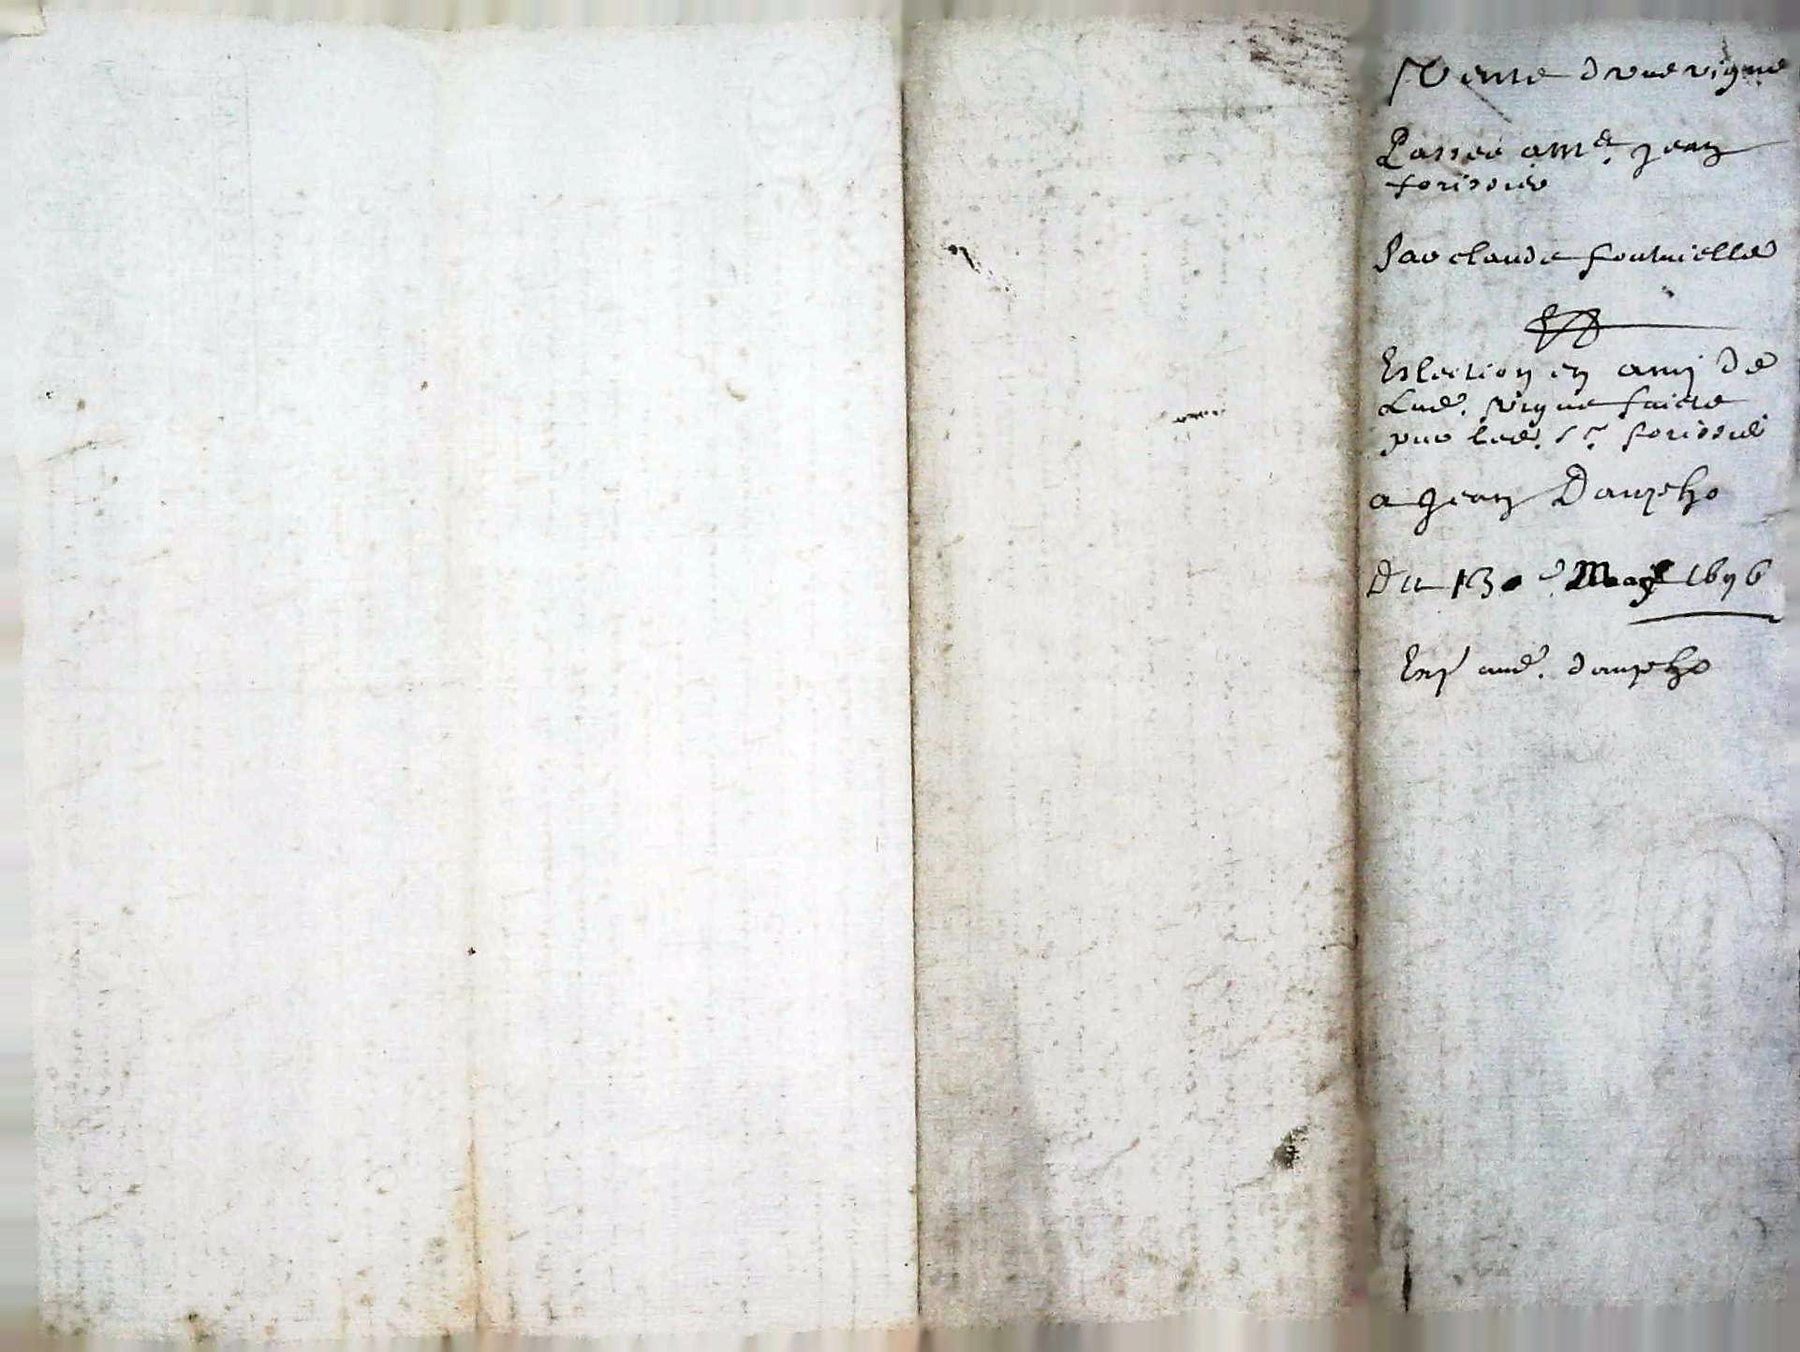 Vente d'vne vigne
Passée a Me Jean
forissier
Par claude fontvielle
Eslection en amy de
lad. vigne faicte
par led. sr forissié
a Jean Daupho
Du 13e May 1696
Exp aud. daupho